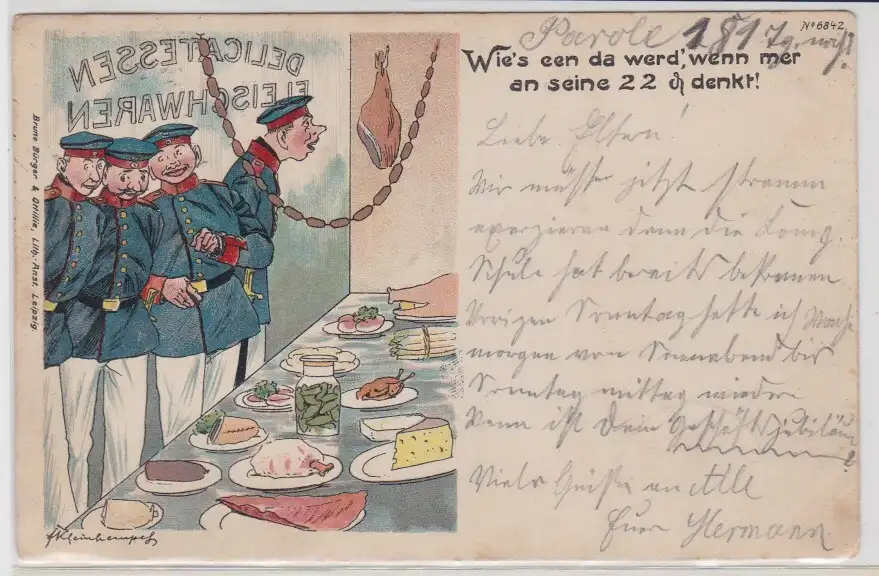 No 6842
Parole 181 Tg. noch!
Wie's een da werd', wenn mer
an seine 22 ₰ denkt!
DELICATESSEN
FLEISCHWAREN
Bruno Bürger & Ottillie, Lith. Anst. Leipzig.
Liebe Eltern!
Wir müssen jetzt stramm
exerzieren denn die Komp.
Schule hat bereits begonnen
Vorigen Sonntag hatte ich Wache
morgen von Sonnabend bis
Sonntag mittag wieder
Wann ist Dein Geschäftsjubiläum
?
Viele Grüße an Alle
Euer Hermann